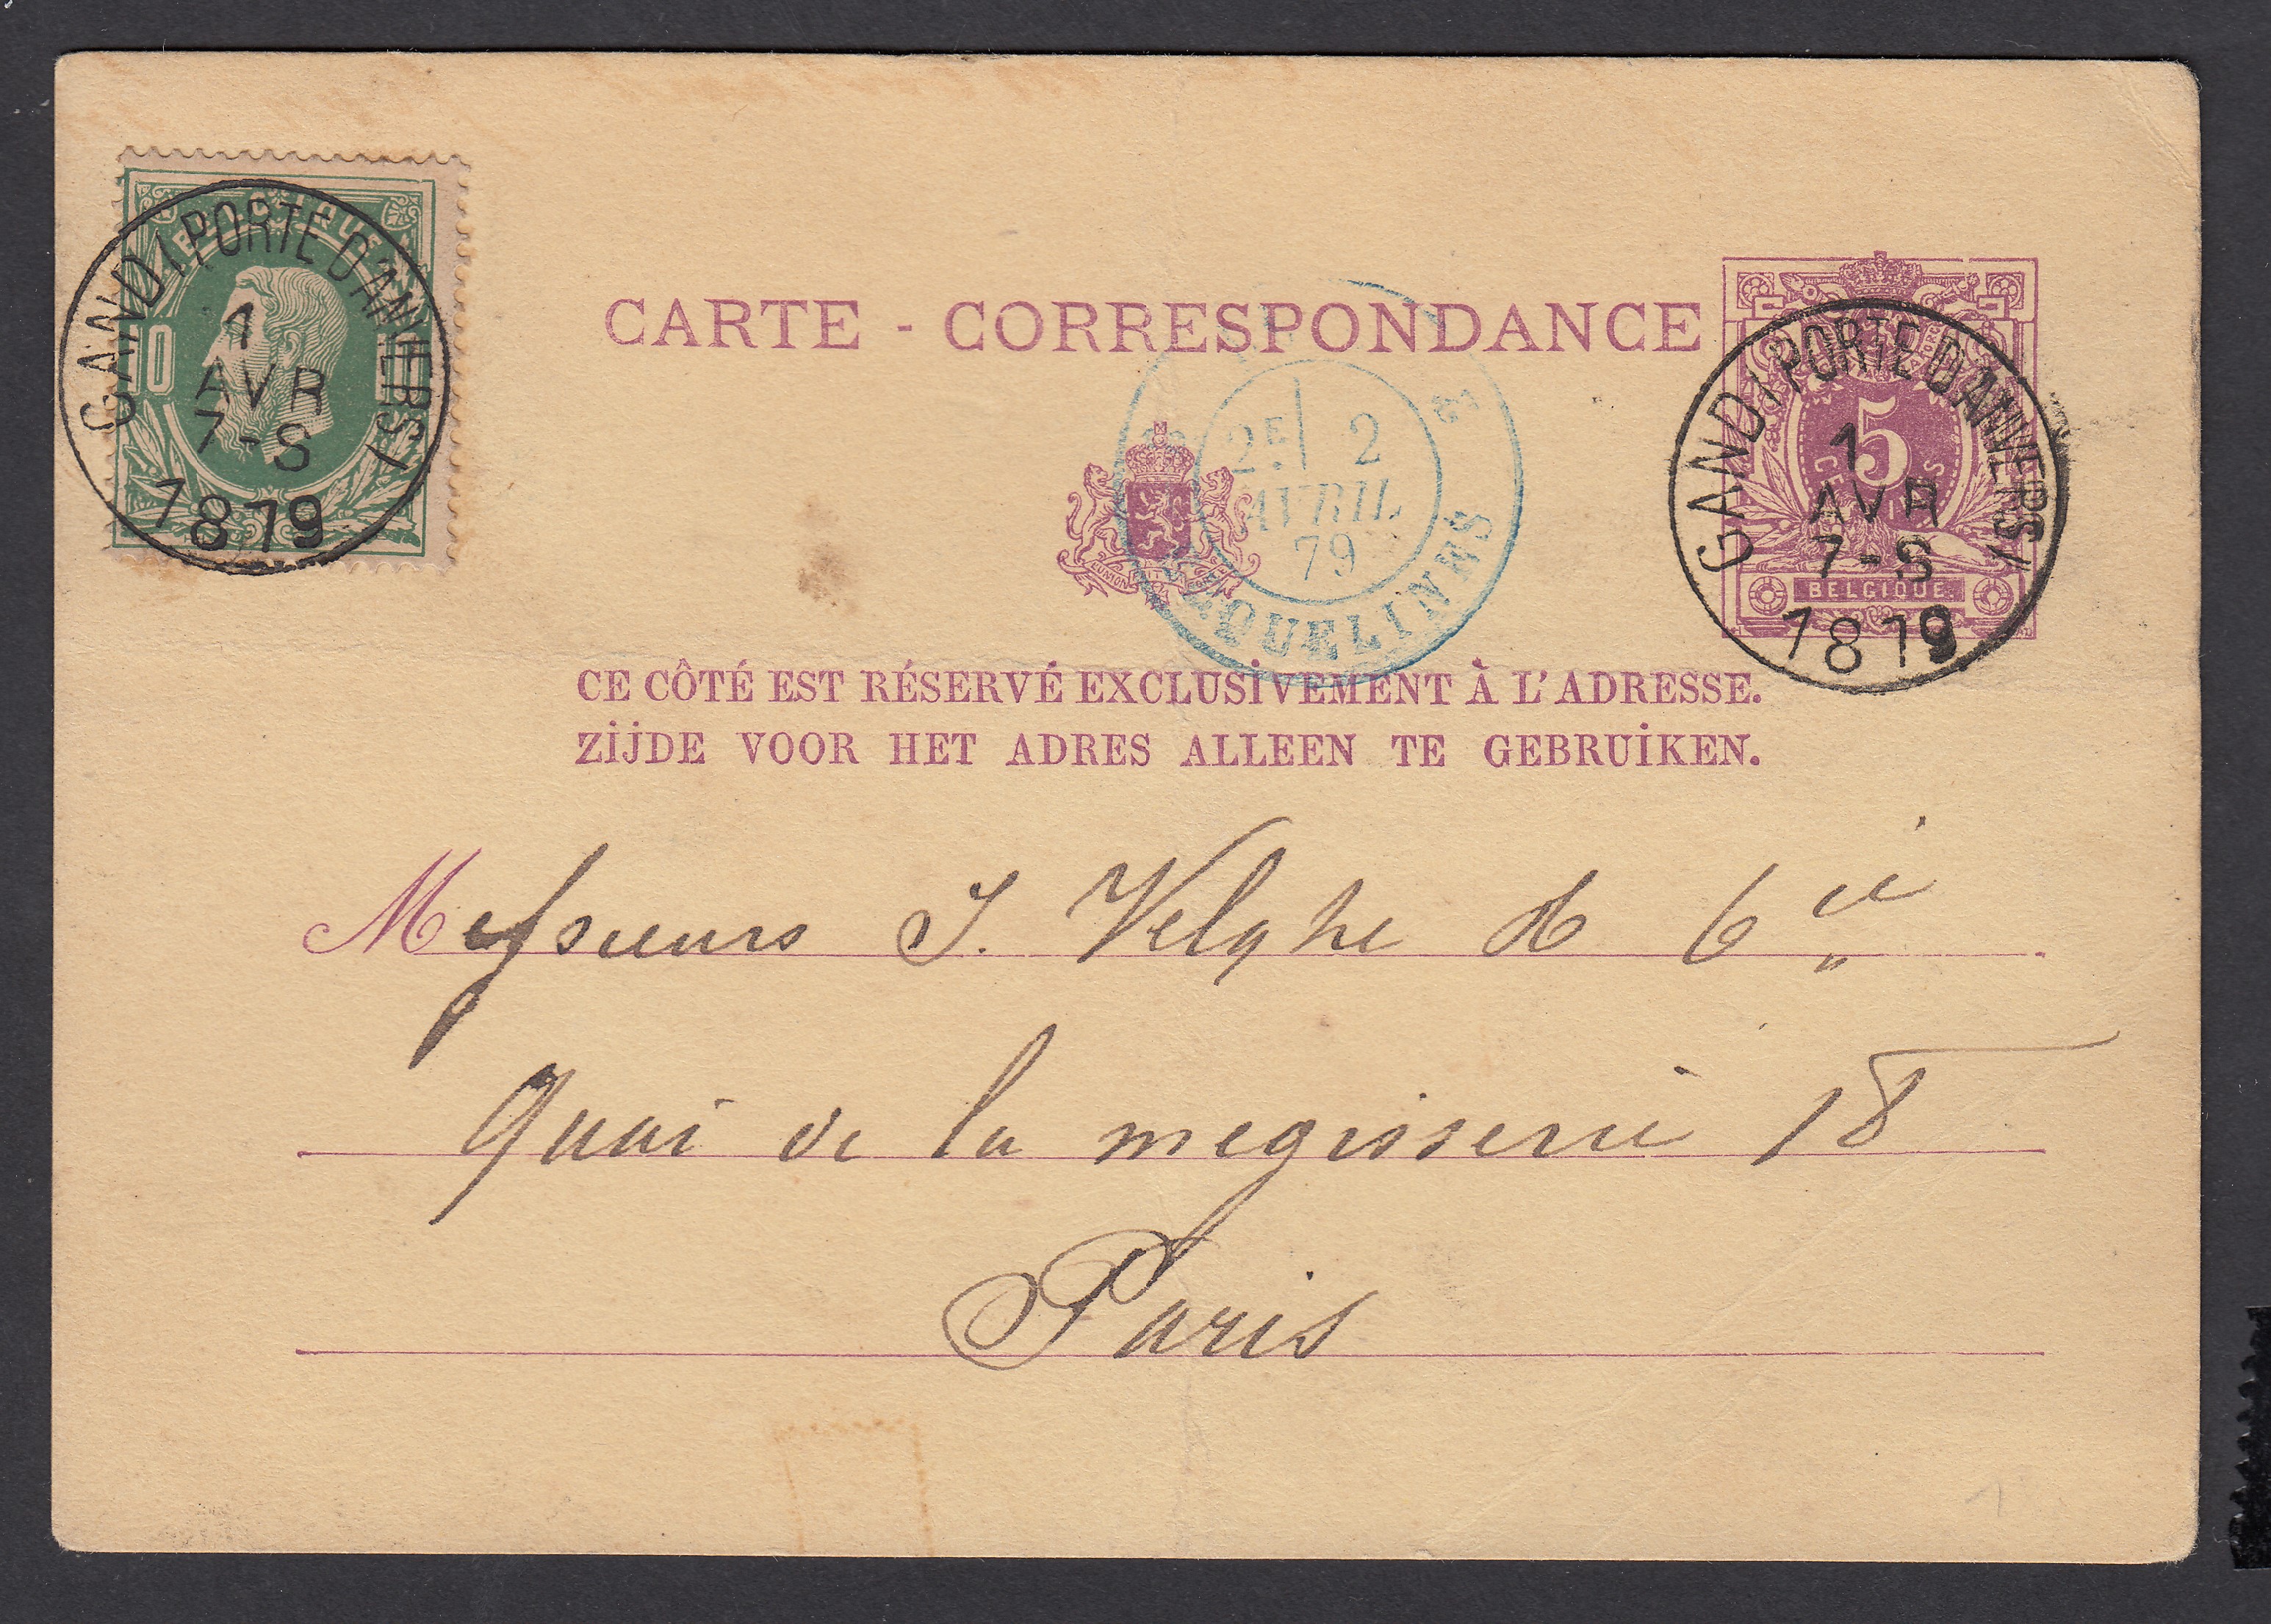 BELGIQUE
10
GAND (PORTE D'ANVERS)
1
AVR
7-S
1879
CARTE - CORRESPONDANCE
2E 2
AVRIL
79
L'UNION FAIT LA FORCE
5
CENTIMES
BELGIQUE
GAND (PORTE D'ANVERS)
1
AVR
7-S
1879
CE CÔTÉ EST RÉSERVÉ EXCLUSİVEMENT À L'ADRESSE.
ZİJDE VOOR HET ADRES ALLEEN TE GEBRUİKEN.
Messieurs J. Velghe & Cie
Quai de la megisserie 18
Paris